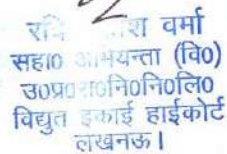 रवि वर्मा
सहा० अभियन्ता (वि०)
उ०प्र०रा०नि०नि०लि०
विद्युत इकाई हाईकोर्ट
लखनऊ।